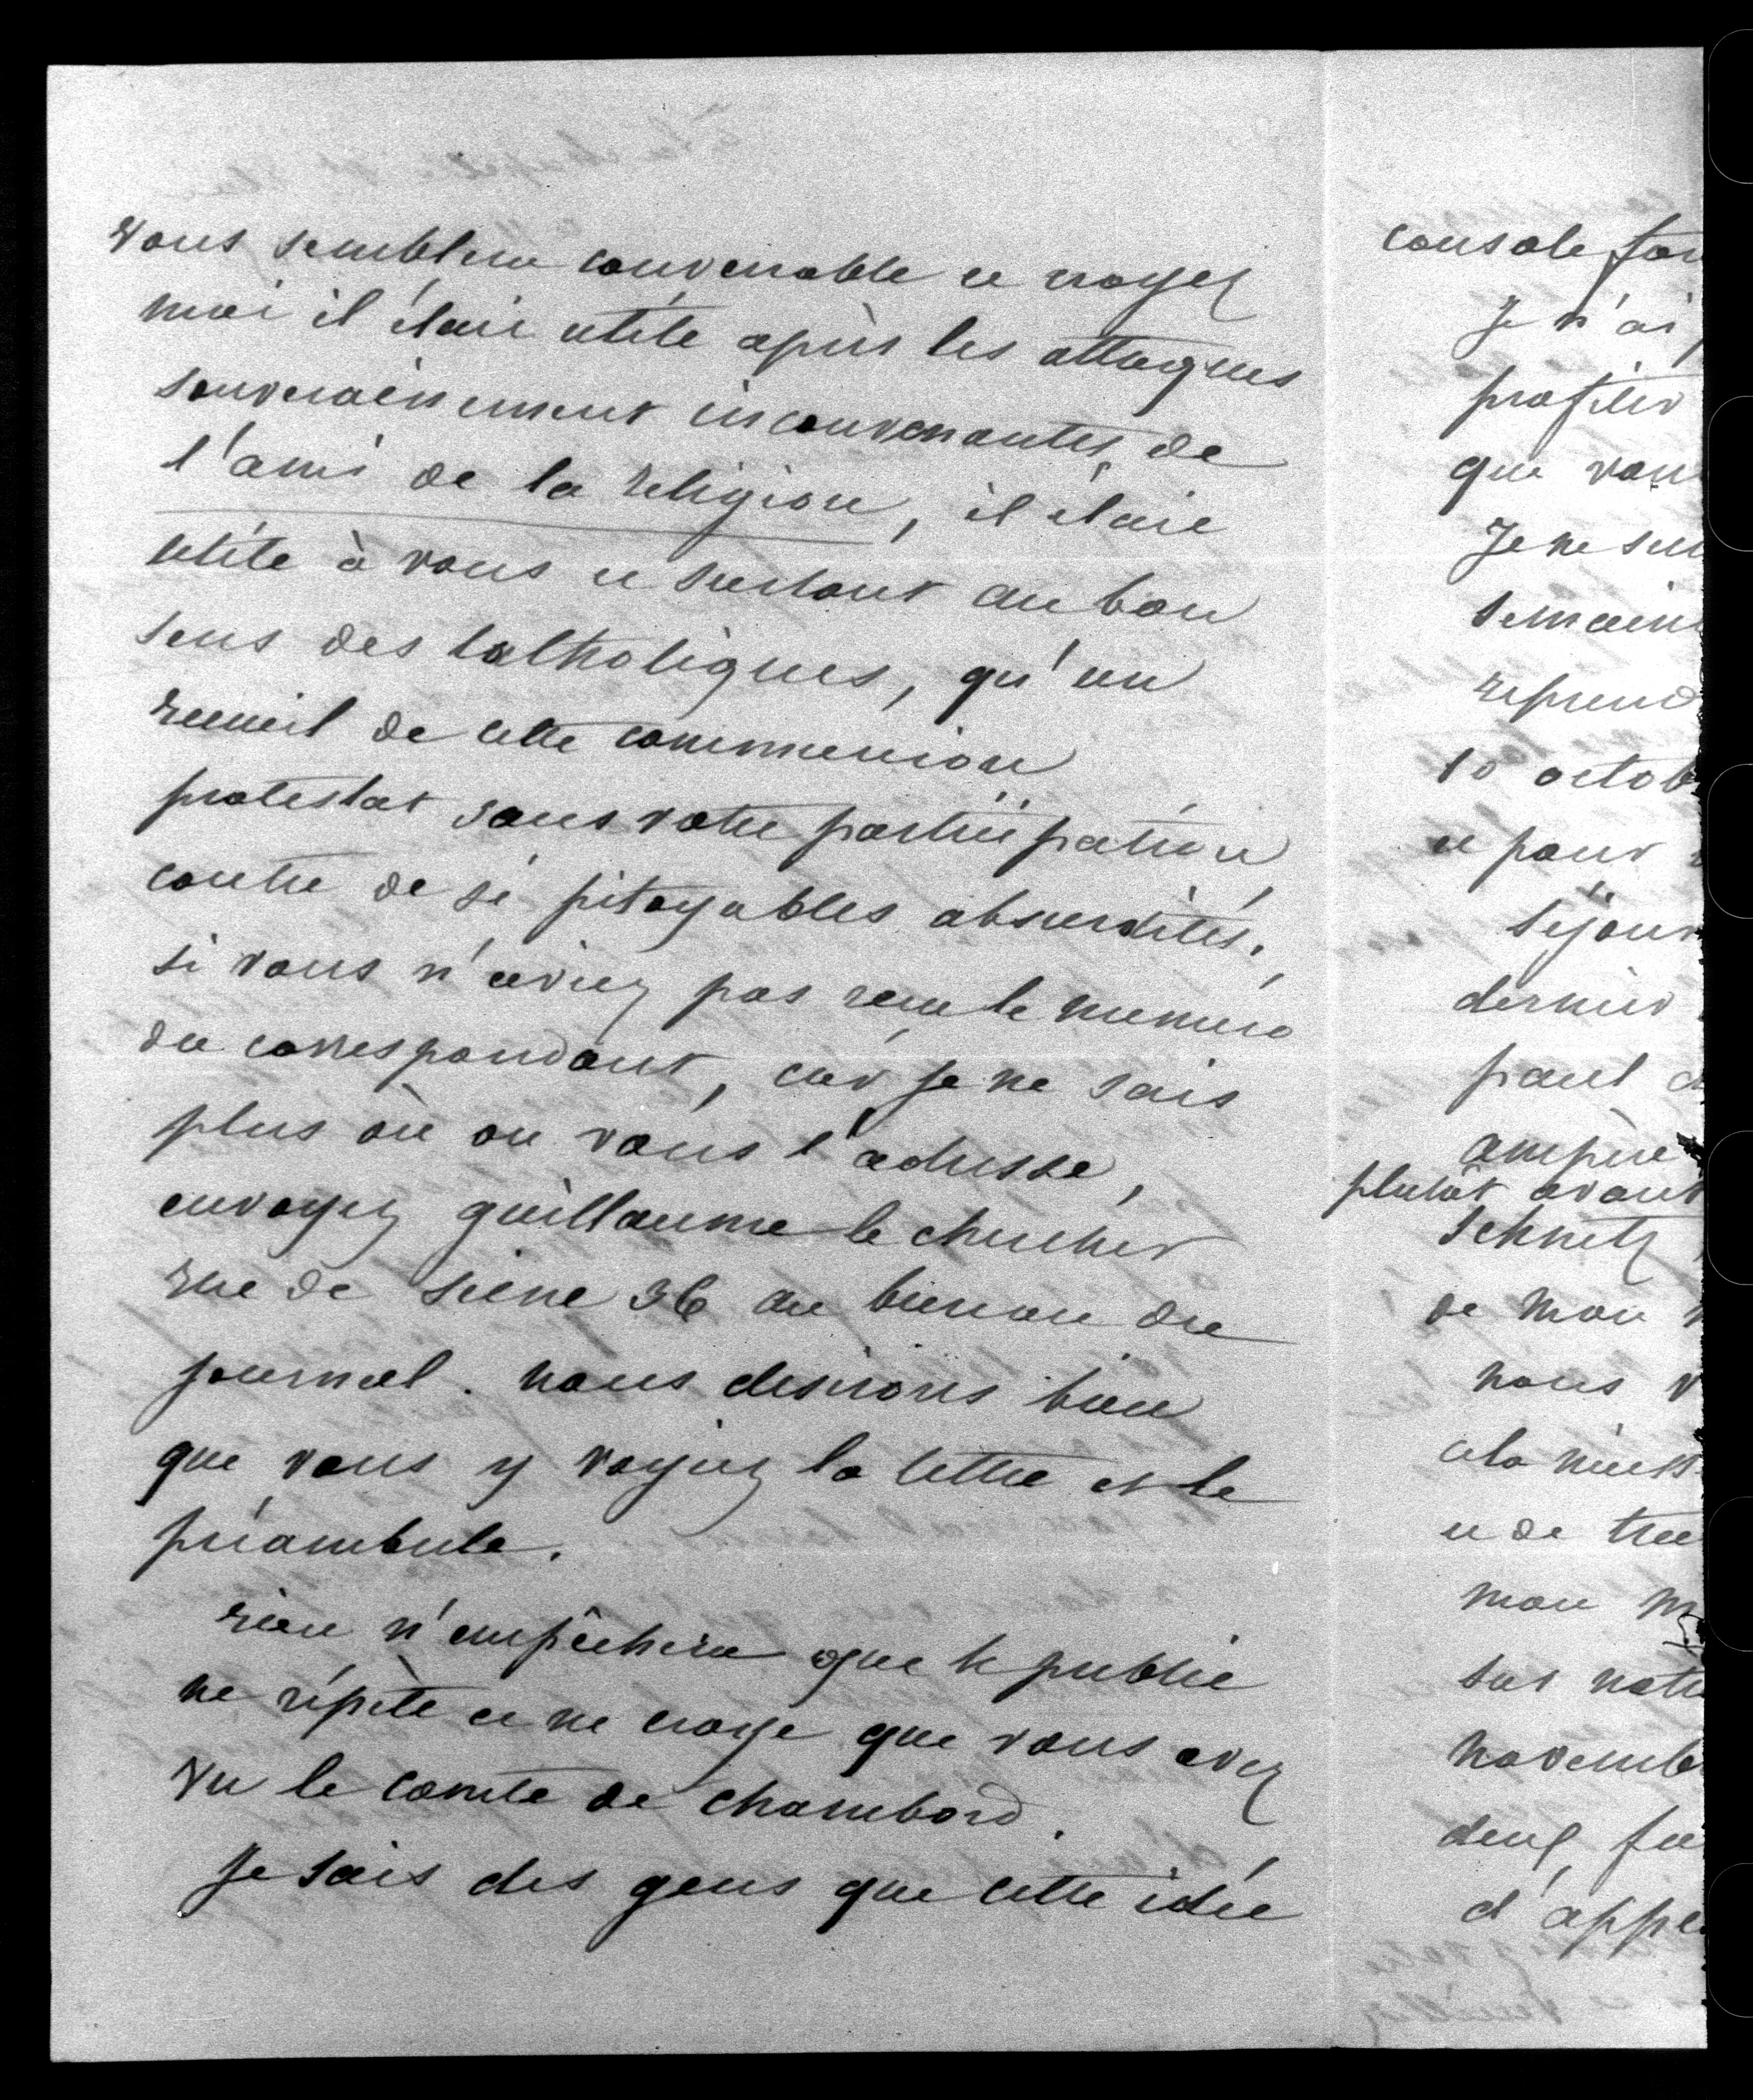 vous semblera convenable et croyez
moi il était utile après les attaques
souverainement inconvenantes de
l'ami de la religion, il était
utile à vous et surtout au bon
sens des catholiques, qu'un
recueil de cette communion
protestat sans votre participation
contre de si pitoyables absurdités.
si vous n'aviez pas recu le numero
du correspondant, car je ne sais
plus où on vous l'adresse,
envoyez guillaume le chercher
rue de seine 36 au bureau du
journal. nous desirons bien
que vous y voyiez la lettre et le
préambule.
rien n'empêchera que le public
ne répète et ne croye que vous avez
vu le comte de chambord.
Je sais des gens que cette idée
console for
Je n'ai
profiter
que vous
Je ne su
semain
reprend
10 octob
et pour
séjour
dernier
paul d
ampère
plutôt avant
Schnetz
de mon
nous v
cela nécess
et de tra
mon m
sur notr
novemb
deux fu
d'appl